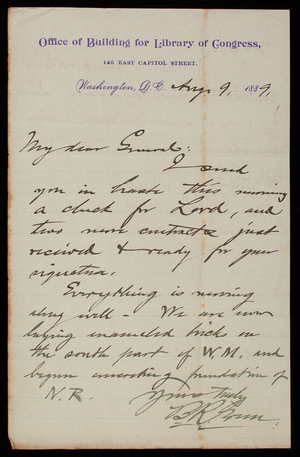 Office of Building for Library of Congress,
145 EAST CAPITOL STREET.
Washington, D.C. Aug 9, 1889,
My dear General:
I send
you in haste this morning
a check for Lord, and
two more contracts just
received & ready for your
signature.
Everything is moving
along well - We are now
laying enameled brick on
the south part of W.M. and
begun concreting foundation of
N.R.
Yours truly